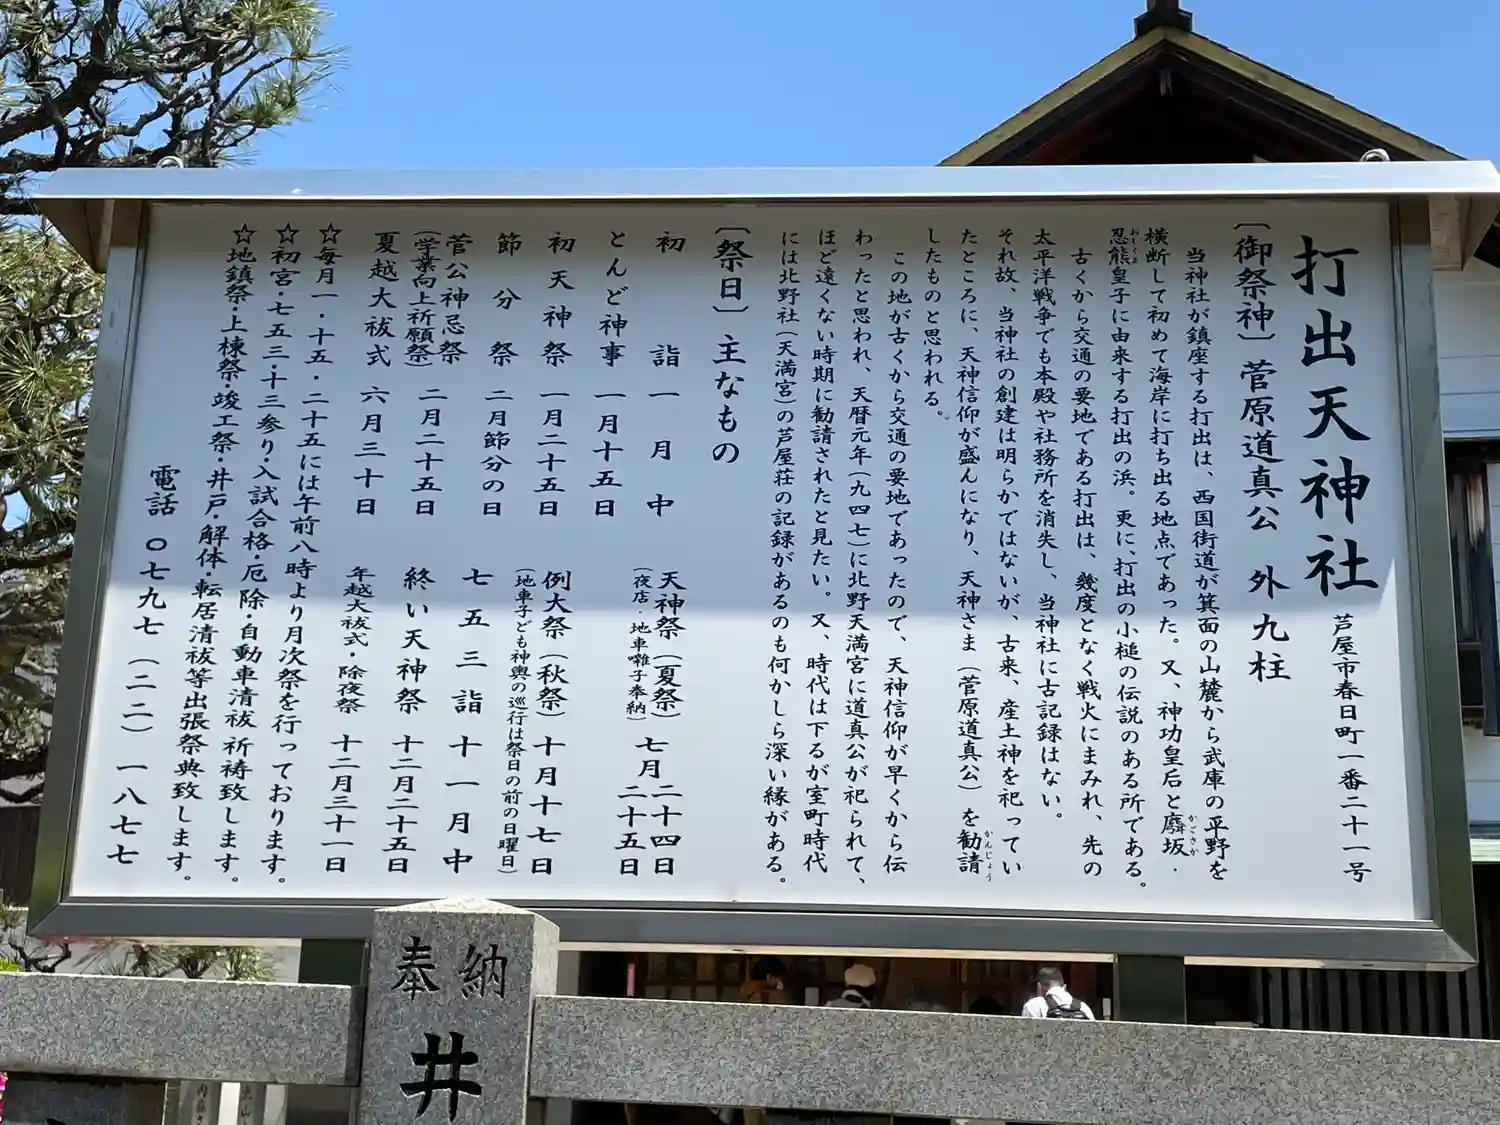 打出天神社 芦屋市春日町一番二十一号
〔御祭神〕菅原道真公 外九柱
当神社が鎮座する打出は、西国街道が箕面の山麓から武庫の平野を
横断して初めて海岸に打ち出る地点であった。又、神功皇后と麛坂・
かごさか
忍熊皇子に由来する打出の浜。更に、打出の小槌の伝説のある所である。
おくま
古くから交通の要地である打出は、幾度となく戦火にまみれ、先の
太平洋戦争でも本殿や社務所を消失し、当神社に古記録はない。
それ故、当神社の創建は明らかではないが、古来、産土神を祀ってい
たところに、天神信仰が盛んになり、天神さま（菅原道真公）を勧請
かんじょう
したものと思われる。
この地が古くから交通の要地であったので、天神信仰が早くから伝
わったと思われ、天暦元年（九四七）に北野天満宮に道真公が祀られて、
ほど遠くない時期に勧請されたと見たい。又、時代は下るが室町時代
には北野社（天満宮）の芦屋荘の記録があるのも何かしら深い縁がある。
〔祭日〕主なもの
初詣 一月中
とんど神事 一月十五日
初天神祭 一月二十五日
節分祭 二月節分の日
菅公神忌祭 二月二十五日
（学業向上祈願祭）
夏越大祓式 六月三十日
天神祭（夏祭）七月二十四日
二十五日
（夜店・地車囃子奉納）
例大祭（秋祭）十月十七日
（地車子ども神輿の巡行は祭日の前の日曜日）
七五三詣 十一月中
終い天神祭 十二月二十五日
年越大祓式・除夜祭 十二月三十一日
☆毎月一・十五・二十五には午前八時より月次祭を行っております。
☆初宮・七五三・十三参り・入試合格・厄除・自動車清祓 祈祷致します。
☆地鎮祭・上棟祭・竣工祭・井戸・解体・転居清祓等出張祭典致します。
電話 〇七九七（二二）一八七七
奉納
井